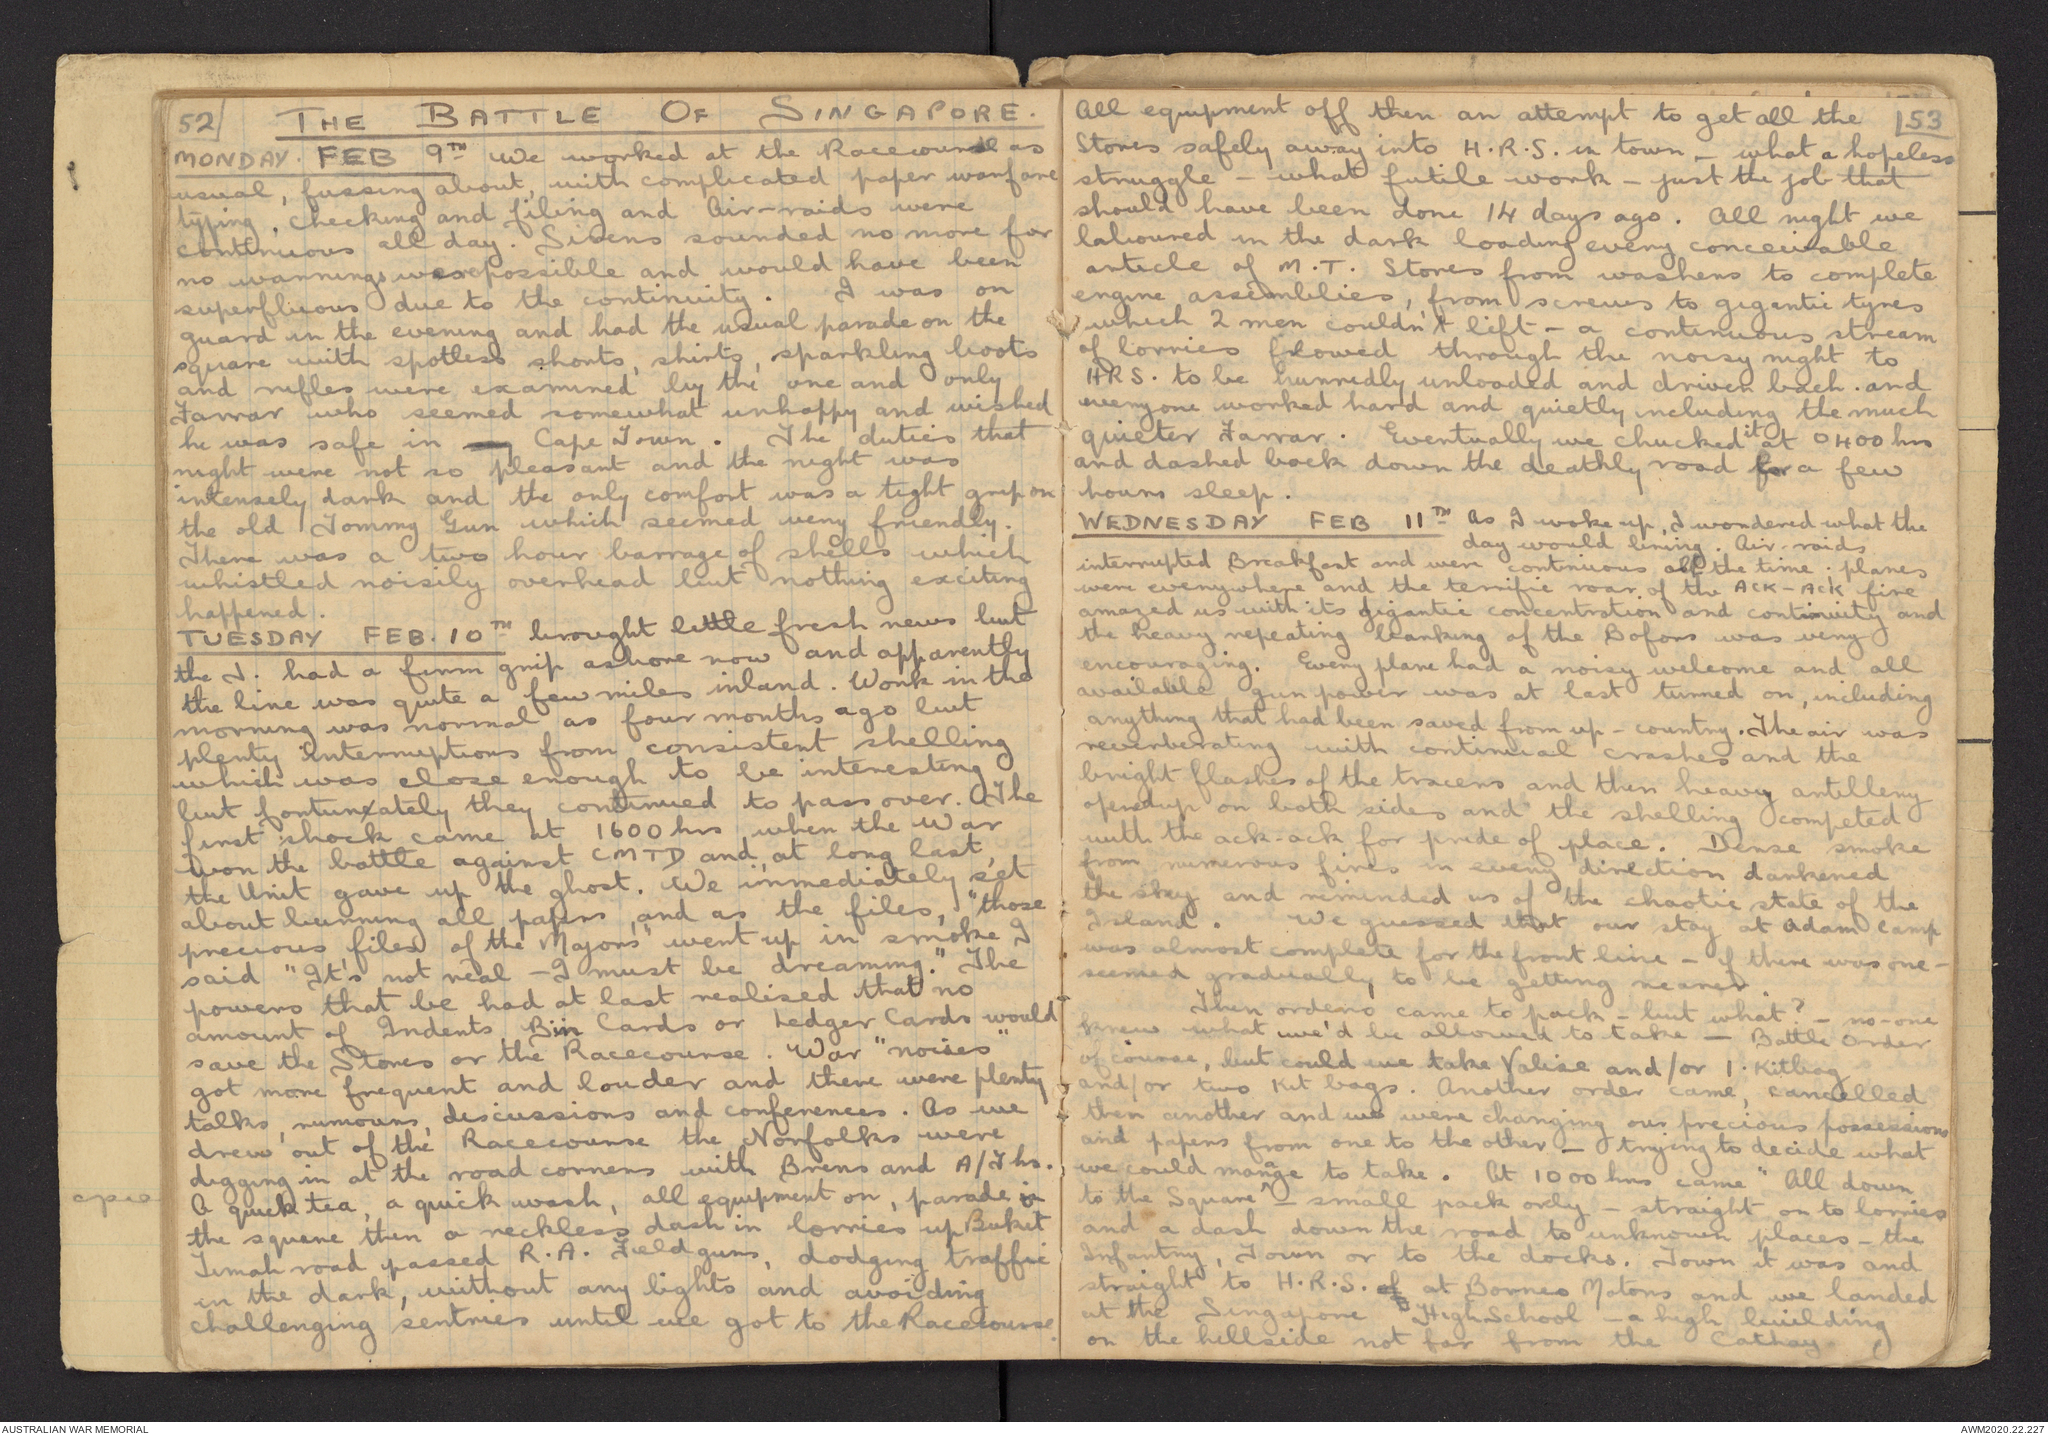 52
THE BATTLE OF SINGAPORE.
MONDAY. FEB 9TH We worked at the Racecourse as
usual, fussing about, with complicated paper warfare
typing, checking and filing and Air-raids were
continuous all day. Sirens sounded no more for
no warnings were possible and would have been
superfluous due to the continuity. I was on
guard in the evening and had the usual parade on the
square with spotless shorts, shirts, sparkling boots
and rifles were examined by the one and only
Farrar who seemed somewhat unhappy and wished
he was safe in Cape Town. The duties that
night were not so pleasant and the night was
intensely dark and the only comfort was a tight grip on
the old Tommy Gun which seemed very friendly.
There was a two hour barrage of shells which
whistled noisily overhead but nothing exciting
happened.
TUESDAY FEB. 10TH brought little fresh news but
the J. had a firm grip ashore now and apparently
the line was quite a few miles inland. Work in the
morning was normal as four months ago but
plenty interruptions from consistent shelling
which was close enough to be interesting
but fortunately they continued to pass over. The
first shock came at 1600 hrs when the War
won the battle against CMTD and, at long last,
the Unit gave up the ghost. We immediately set
about burning all papers, and as the files, "those
precious files of the Majors" went up in smoke I
said "It's not real - I must be dreaming." The
powers that be had at last realised that no
amount of Indents, Bin Cards or Ledger Cards would
save the Stores or the Racecourse. War "noises"
got more frequent and louder and there were plenty
talks, rumours, discussions and conferences. As we
drew out of the Racecourse the Norfolks were
digging in at the road corners with Brens and A/T hs.
A quick tea, a quick wash, all equipment on, parade in
the square then a reckless dash in lorries up Bukit
Timah road passed R.A. Field guns, dodging traffic
in the dark, without any lights and avoiding
challenging sentries until we got to the Racecourse
cpio
53
All equipment off then an attempt to get all the
Stores safely away into H.R.S. in town - what a hopeless
struggle - what futile work - just the job that
should have been done 14 days ago. All night we
laboured in the dark loading every conceivable
article of M.T. Stores from washers to complete
engine assemblies, from screws to gigantic tyres
which 2 men couldn't lift - a continuous stream
of lorries flowed through the noisy night to
HRS. to be hurriedly unloaded and driven back. and
everyone worked hard and quietly including the much
quieter Farrar. Eventually we chucked it at 0400 hrs
and dashed back down the deathly road for a few
hours sleep.
WEDNESDAY FEB 11TH As I woke up, I wondered what the
day would bring. Air-raids
interrupted Breakfast and were continuous all the time. planes
were everywhere and the terrific roar of the ACK-ACK fire
amazed us with its gigantic concentration and continuity and
the heavy repeating blanking of the Bofors was very
encouraging. Every plane had a noisy welcome and all
available gun power was at last turned on, including
anything that had been saved from up-country. The air was
reverberating with continual crashes and the
bright flashes of the tracers and then heavy artillery
opened up on both sides and the shelling competed
with the ack-ack for pride of place. Dense smoke
from numerous fires in every direction darkened
the sky and reminded us of the chaotic state of the
Island. We guessed that our stay at Adam Camp
was almost complete for the front line - if there was one -
seemed gradually to be getting nearer.
Then orders came to pack - but what? - no-one
knew what we'd be allowed to take - Battle Order
of course, but could we take Valise and/or 1. Kitbag
and/or two Kit bags. Another order came, cancelled
then another and we were changing our precious possessions
and papers from one to the other - trying to decide what
we could manage to take. At 1000 hrs came "All down
to the Square" - small pack only - straight on to lorries
and a dash down the road to unknown places - the
Infantry, Town or to the docks. Town it was and
straight to H.R.S. at Borneo Motors and we landed
at the Singapore High School - a high building
on the hillside not far from the Cathay
AUSTRALIAN WAR MEMORIAL
AWM2020.22.227